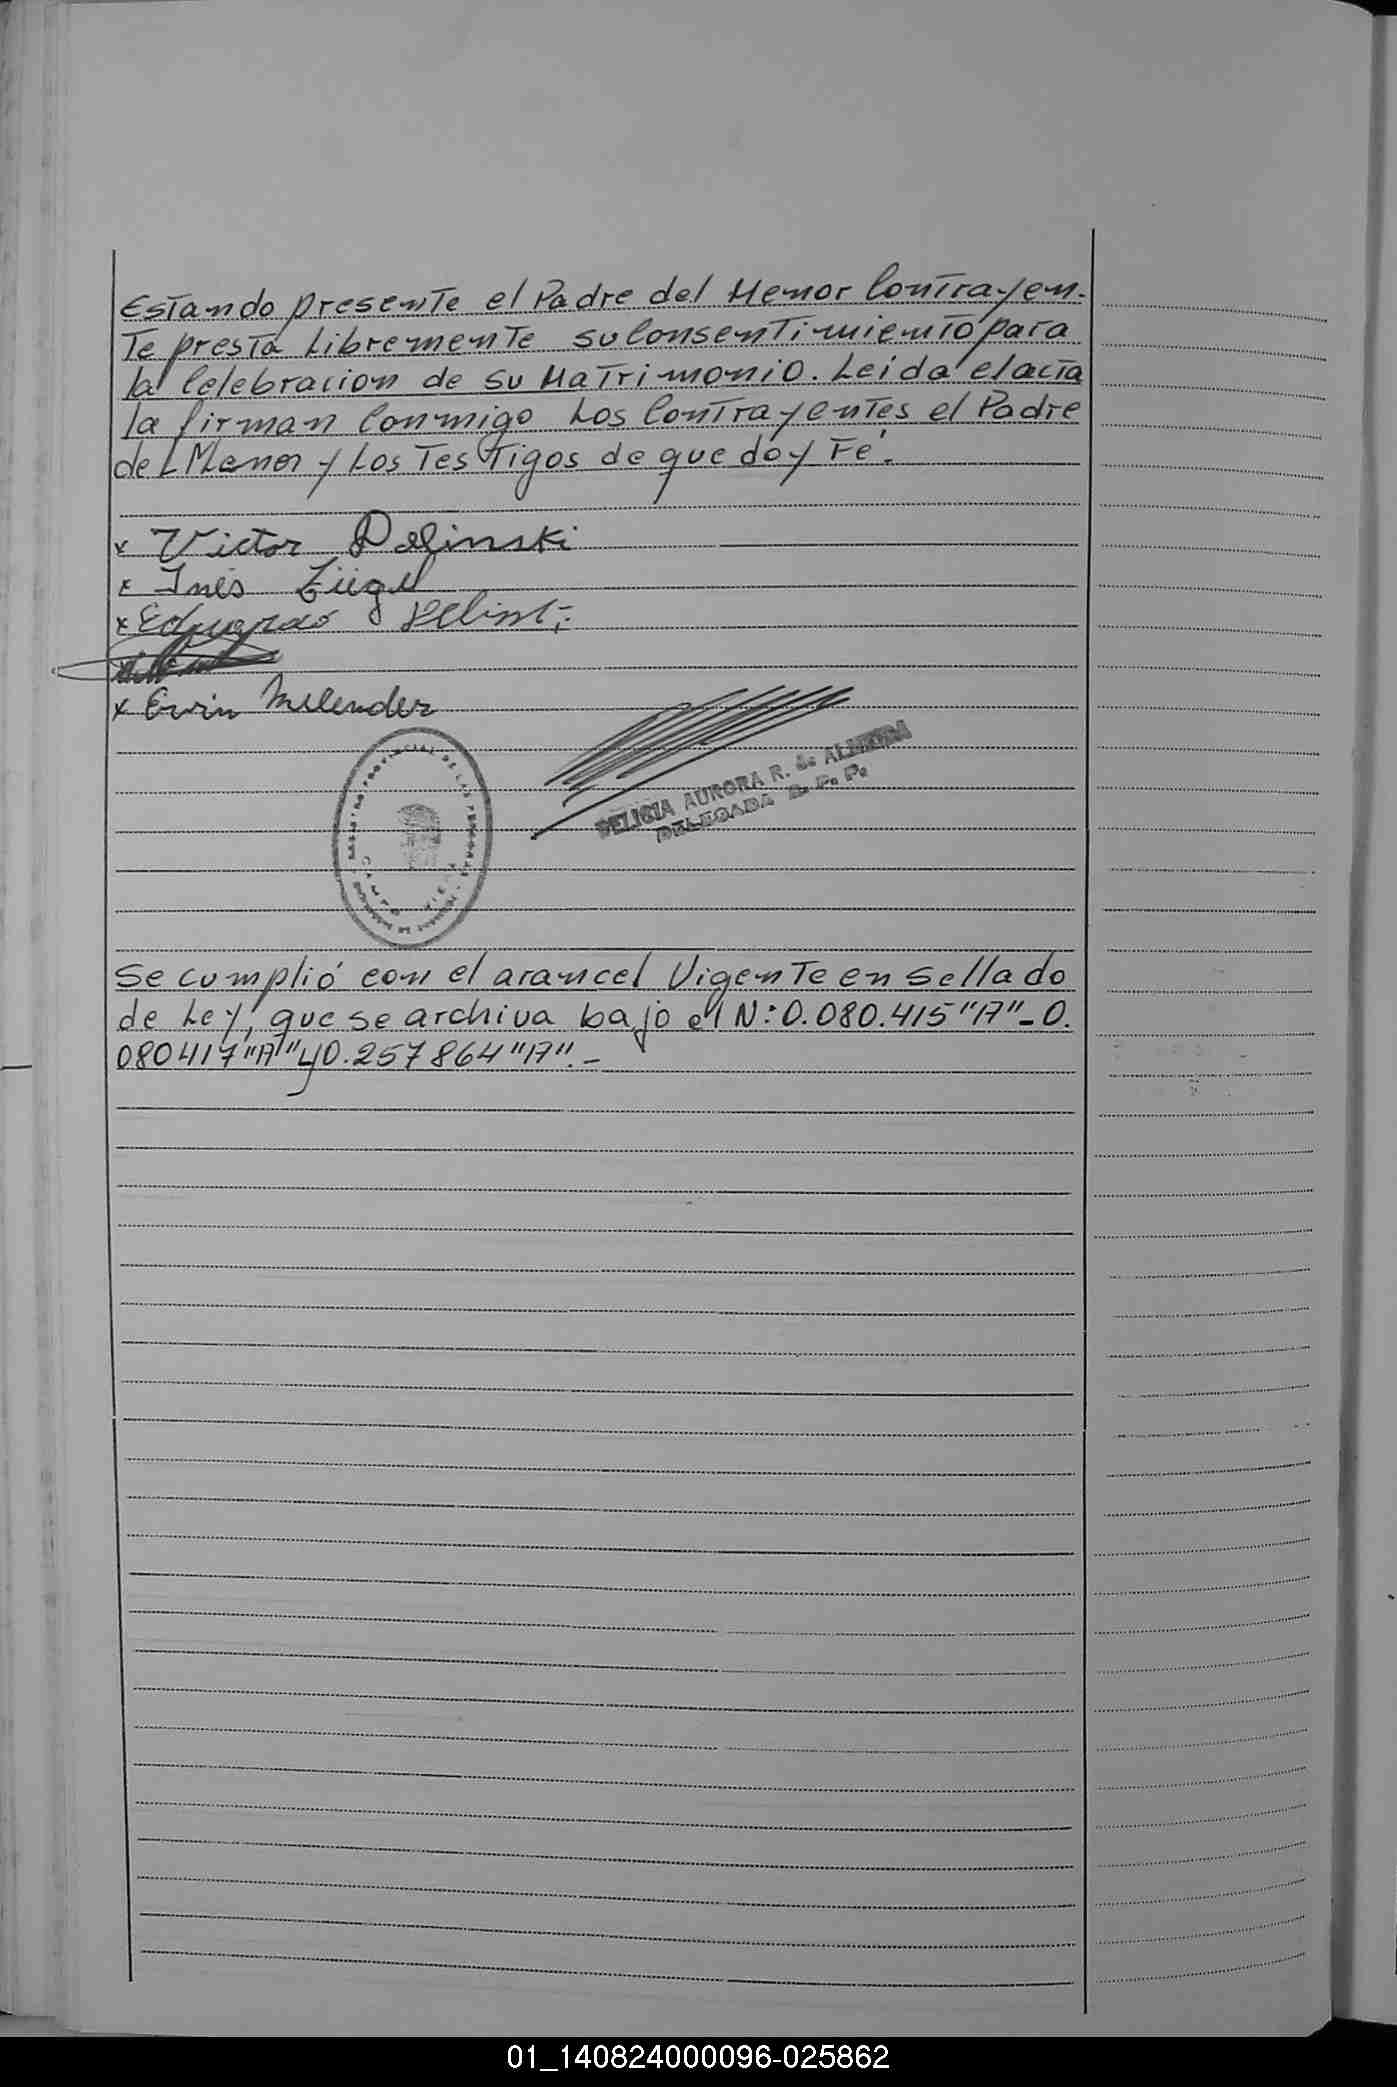 Estando presente el Padre del Menor Contrayen-
te presta Libremente su Consentimiento para
la Celebracion de su Matrimonio. Leida el acta
la firman Conmigo Los Contrayentes el Padre
del Menor y Los Testigos de que doy Fé.
x Victor Delinski
x Inés
x Eduardo
x Ervin Melender
REGISTRO PROVINCIAL DE LAS PERSONAS
CAMPO VIERA
DELICIA AURORA R. de ALMEIDA
DELEGADA R. P. P.
Se cumplió con el arancel Vigente en sellado
de Ley, que se archiva bajo el N: 0.080.415 "A" - 0.
080417 "A" y 0.257864 "A". -
01_140824000096-025862